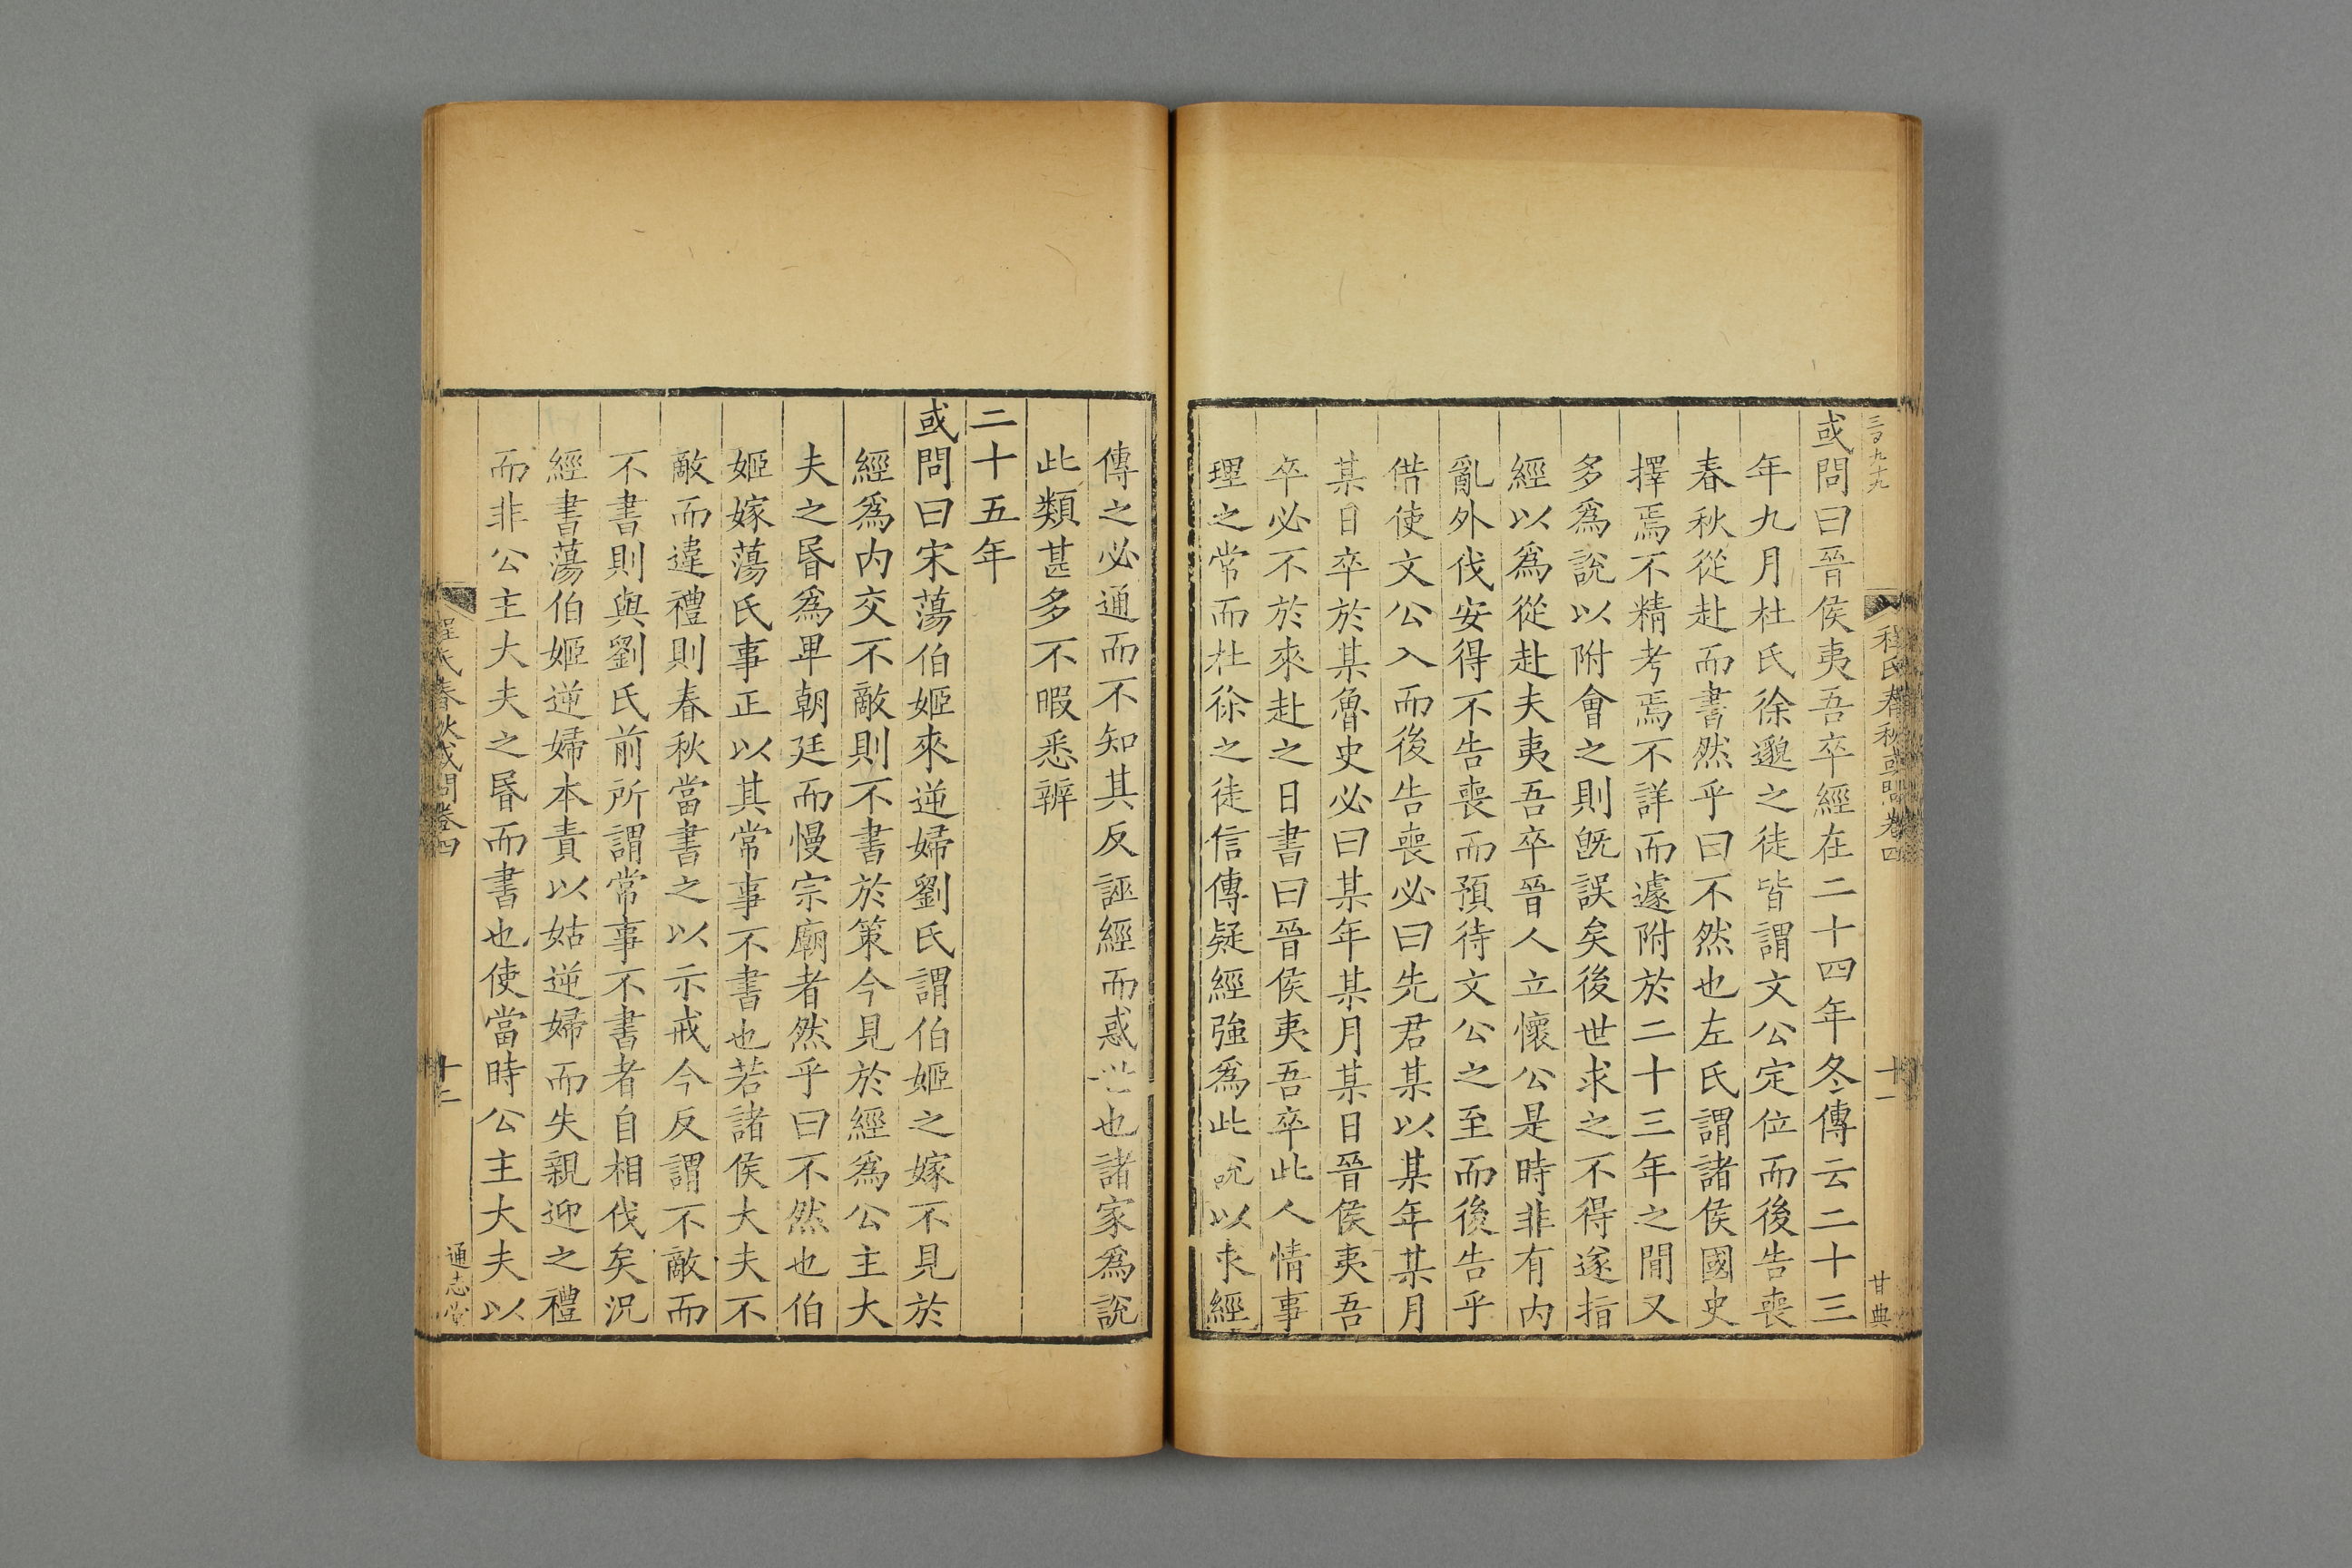 程氏春秋或問卷四
十一
甘典
或問曰晉侯夷吾卒經在二十四年冬傳云二十三
年九月杜氏徐邈之徒皆謂文公定位而後告喪
春秋從赴而書然乎曰不然也左氏謂諸侯國史
擇焉不精考焉不詳而遽附於二十三年之間又
多爲説以附會之則旣誤矣後世求之不得遂指
經以爲從赴夫夷吾卒晉人立懷公是時非有内
亂外伐安得不告喪而預待文公之至而後告乎
借使文公入而後告喪必曰先君某以某年某月
某日卒於某魯史必曰某年某月某日晉侯夷吾
卒必不於來赴之日書曰晉侯夷吾卒此人情事
理之常而杜徐之徒信傳疑經強爲此説以求經
傳之必通而不知其反誣經而惑世也諸家爲説
此類甚多不暇悉辨
二十五年
或問曰宋蕩伯姬來逆婦劉氏謂伯姬之嫁不見於
經爲内交不敵則不書於策今見於經爲公主大
夫之昬爲卑朝廷而慢宗廟者然乎曰不然也伯
姬嫁蕩氏事正以其常事不書也若諸侯大夫不
敵而違禮則春秋當書之以示戒今反謂不敵而
不書則與劉氏前所謂常事不書者自相伐矣況
經書蕩伯姬逆婦本責以姑逆婦而失親迎之禮
而非公主大夫之昬而書也使當時公主大夫以
程氏春秋或問卷四
十二
通志堂